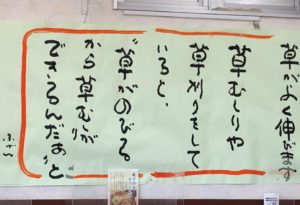 草がよく伸びます
草むしりや
草刈りをして
いると、
“草がのびる
から草むしりが
できるんだぁ”と